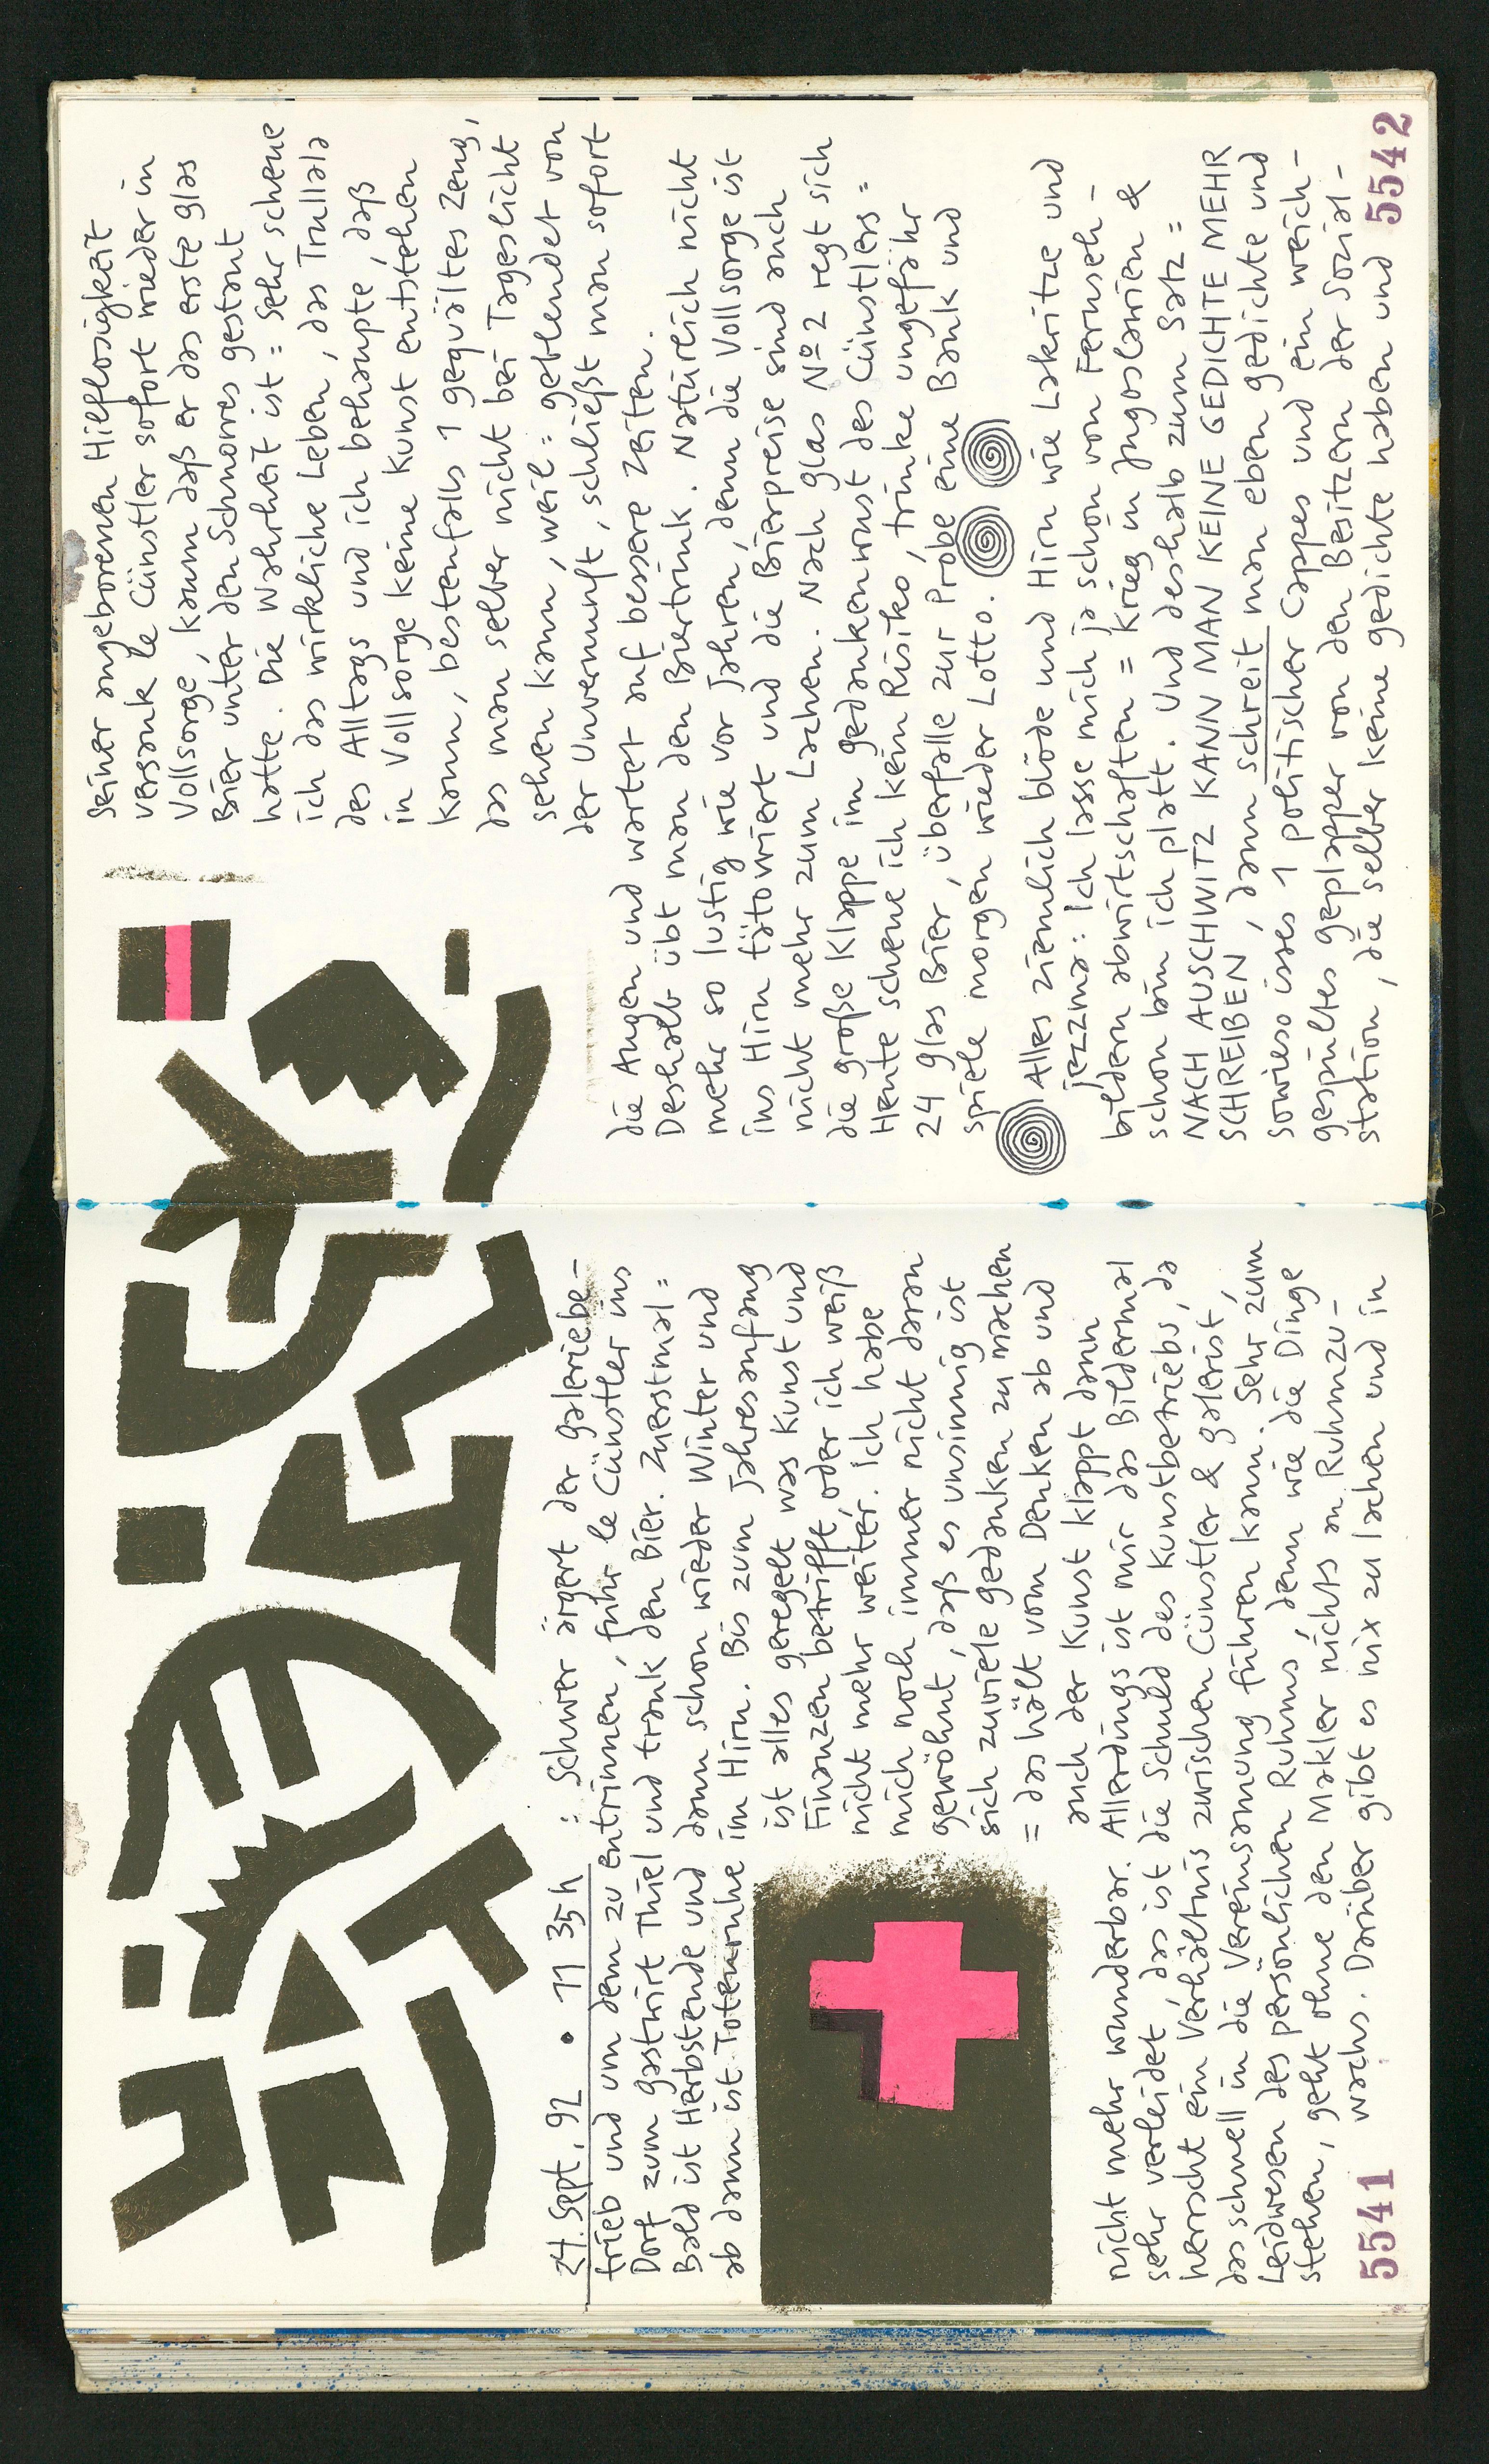 24. Sept. 92 • 11 35 h : Schwer ärgert der galeriebe-
trieb und um dem zu entrinnen, fuhr le Cünstler ins
Dorf zum gastwirt Thiel und trank den Bier. Zuerstmal =
Bald ist Herbstende und dann schon wieder Winter und
ab dann ist Totenruhe im Hirn. Bis zum Jahresanfang
ist alles geregelt was Kunst und
Finanzen betrifft, oder ich weiß
nicht mehr weiter. Ich habe
mich noch immer nicht daran
gewöhnt, daß es unsinnig ist
sich zuviele gedanken zu machen
= das hält vom Denken ab und
auch der Kunst klappt dann
nicht mehr wunderbar. Allerdings ist mir das Bildermal
sehr verleidet, das ist die Schuld des Kunstbetriebs, da
herrscht ein Verhältnis zwischen Cünstler & galerist,
das schnell in die Vereinsamung führen kann. Sehr zum
Leidwesen des persönlichen Ruhms, denn wie die Dinge
stehen, geht ohne den Makler nichts an Ruhmzu-
wachs. Darüber gibt es nix zu lachen und in
5541
seiner angeborenen Hieflosigkeit
versank le Cünstler sofort wieder in
Vollsorge, kaum daß er das erste glas
Bier unter den Schnorres gestaut
hatte. Die Wahrheit ist = sehr scheue
ich das wirkliche Leben, das Trullala
des Alltags und ich behaupte, daß
in Vollsorge keine Kunst entstehen
kann, bestenfalls 1 gequältes Zeug,
das man selber nicht bei Tageslicht
sehen kann, weil = geblendet von
der Unvernunft, schließt man sofort
die Augen und wartet auf bessere Zeiten.
Deshalb übt man den Biertrunk. Natürlich nicht
mehr so lustig wie vor Jahren, denn die Vollsorge ist
ins Hirn tätowiert und die Bierpreise sind auch
nicht mehr zum Lachen. Nach glas № 2 regt sich
die große Klappe im gedankenwust des Cünstlers =
Heute scheue ich kein Risiko, trinke ungefähr
24 glas Bier, überfalle zur Probe eine Bank und
spiele morgen wieder Lotto.
Alles ziemlich blöde und Hirn wie Lakritze und
jezzma: Ich lasse mich ja schon von Fernseh-
bildern abwirtschaften = Krieg in Jugoslawien &
schon bin ich platt. Und deshalb zum Satz =
NACH AUSCHWITZ KANN MAN KEINE GEDICHTE MEHR
SCHREIBEN, dann schreit man eben gedichte und
sowieso isses 1 politischer Cappes und ein weich-
gespültes geplapper von den Besitzern der Sozial-
station, die selber keine gedichte haben und
5542